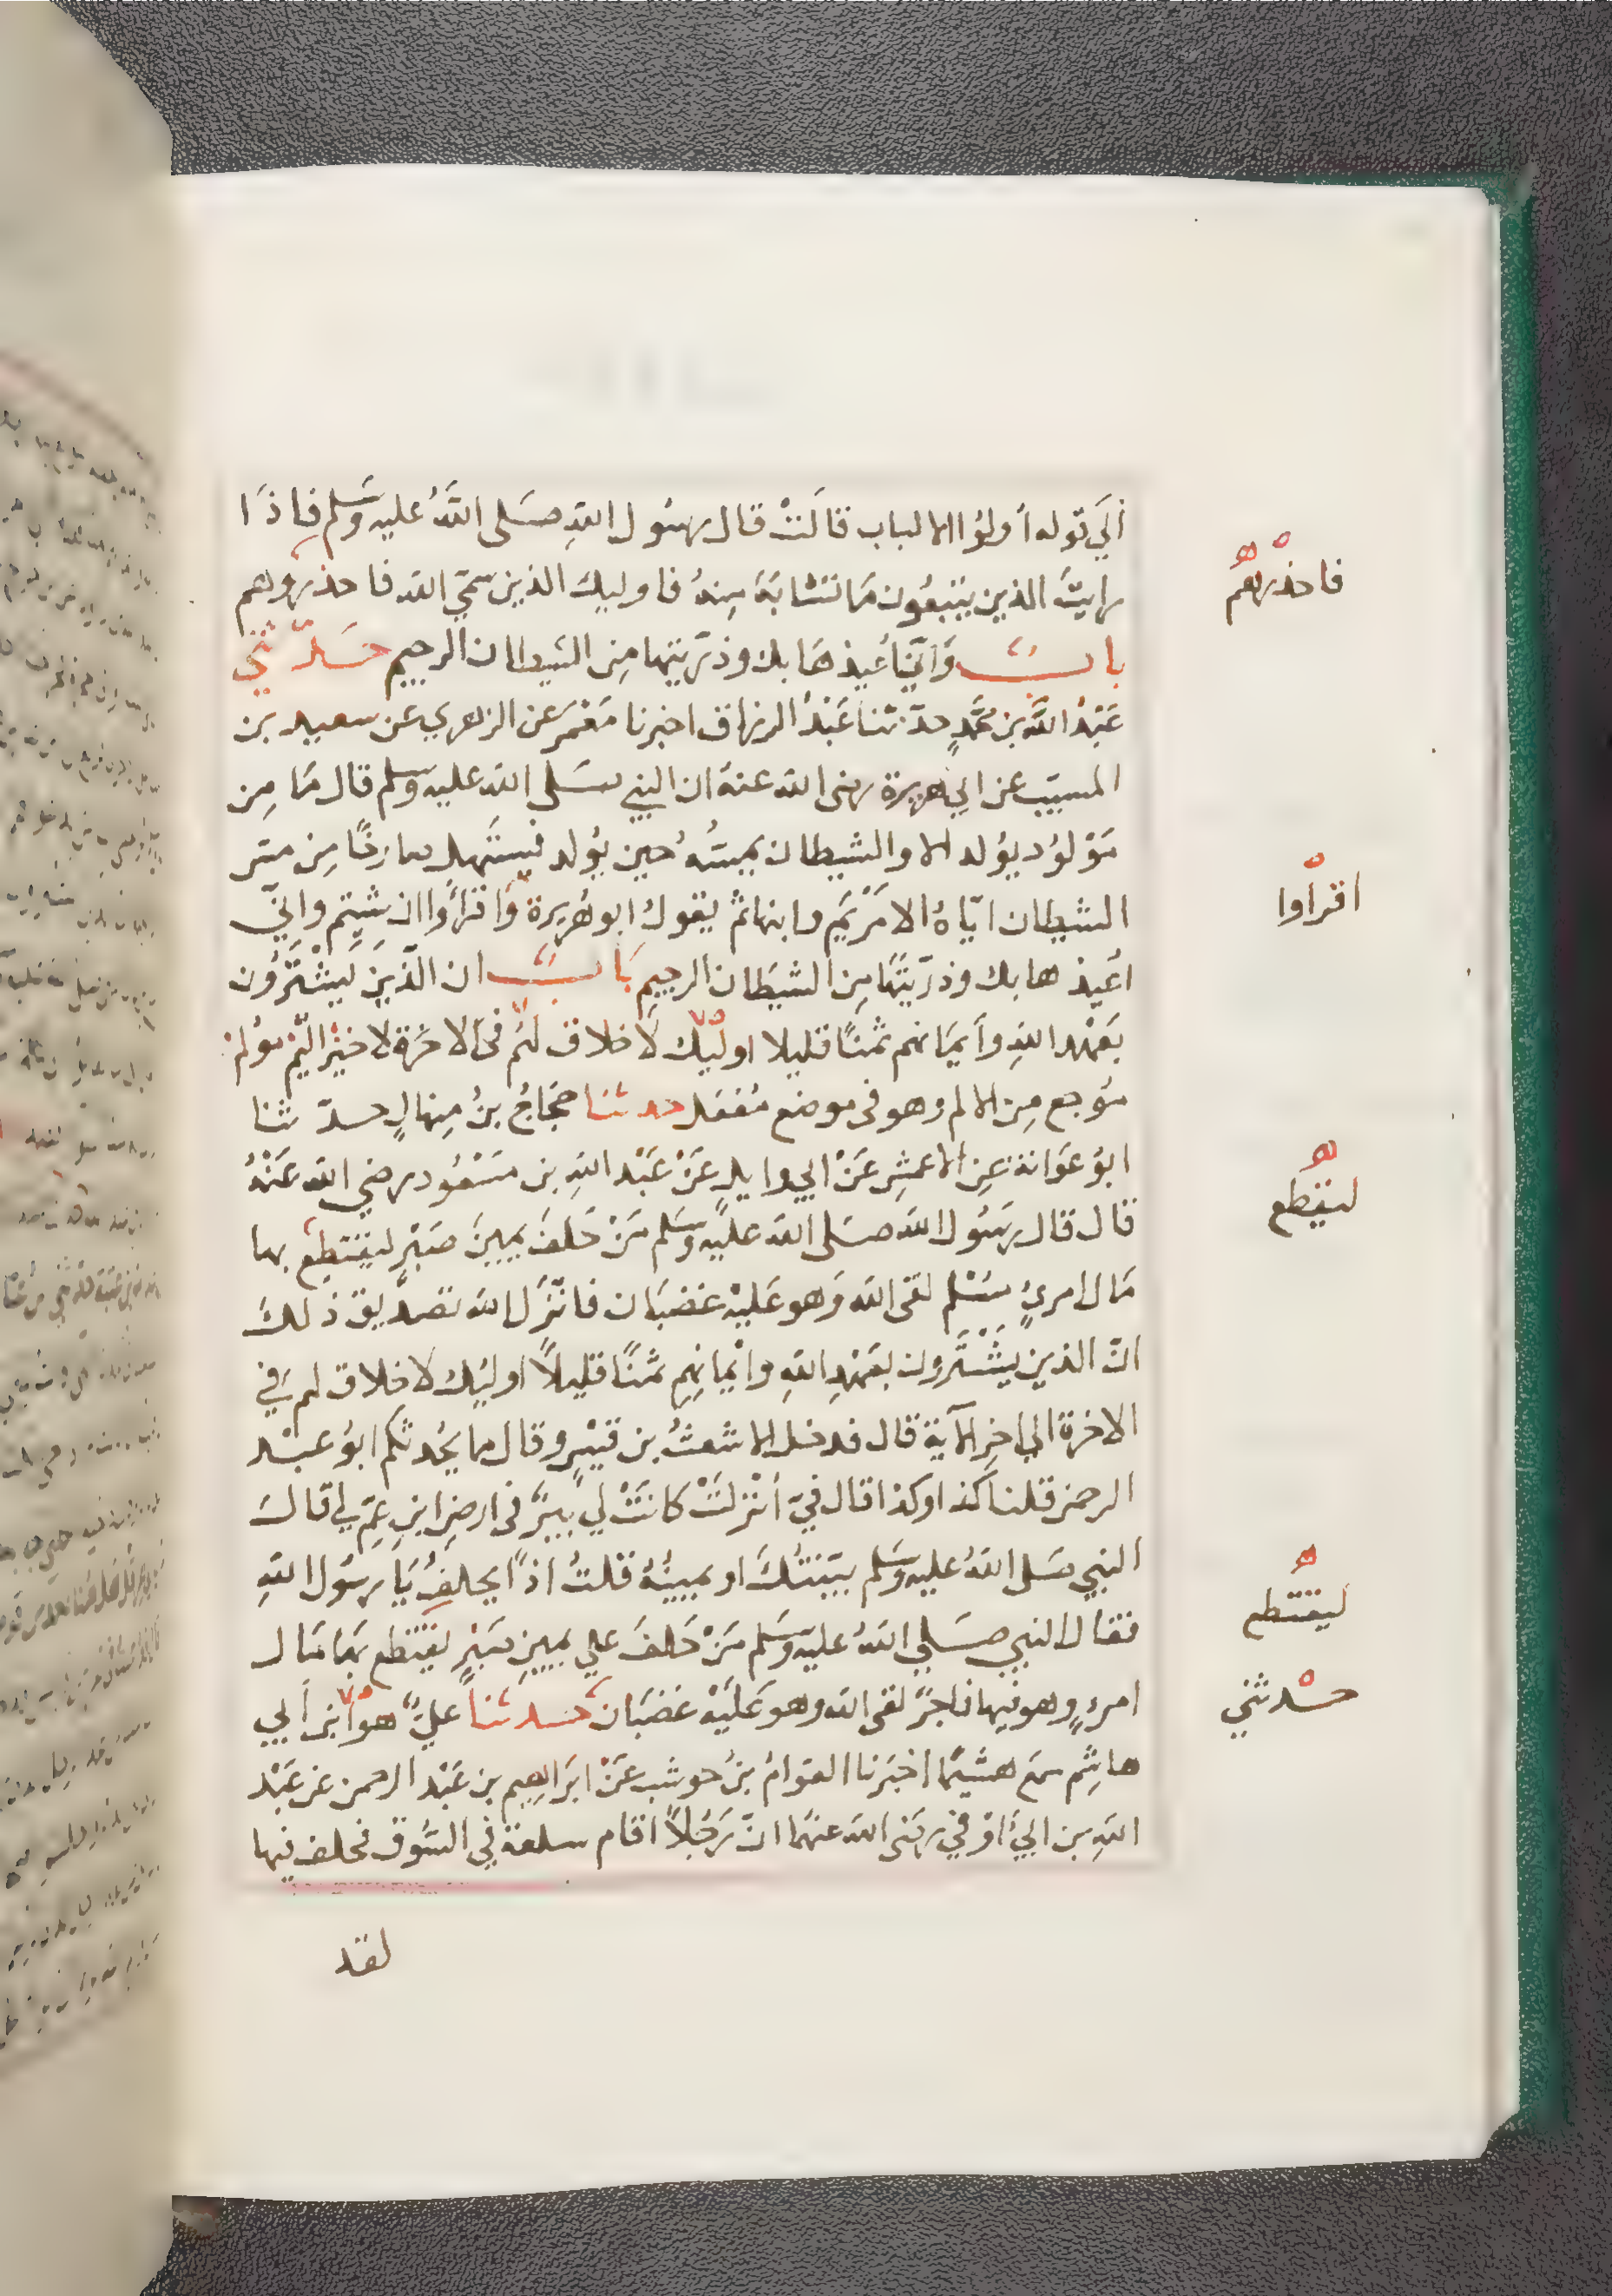 الَي قوله أولوُا الالباب قالَتْ قال رسُول اللهِ صَلى اللهُ عليه وَسَلم فاِذَا
رايتَ الذين يتبعُون مَا تَشابَهَ مِنهُ فاوليك الذين سَمّي الله فاحذروهم
فاحذرهُم
بابُ وَانّي أعيذهَا بك وذرّيتها مِن الشيطان الرجيم حَدّثني
عَبْدُ اللهِ بن محمَّدٍ حدّثنا عَبْدُ الرزاق اخبرنا مَعْمَر عن الزهري عن سعيد بن
المسيّب عن ابي هريرة رضى الله عنهُ ان النبي صَلي الله عليه وسلم قال مَا مِن
مَوْلوُد يوُلد الا والشيطان يمسُّهُ حين يوُلد فيستَهِل صارخًا مِن مسّ
الشيطان ايّاهُ الا مَرْيَم وابنها ثمَّ يقولُ ابو هُريرة وَاقرأوا ان شيتم وانيّ
اقراوا
اعُيذها بك وذرّيتَهَا مِن الشيَطان الرجيمِ بَابُ ان الّذِينَ يَشْتَرُون
بعَهْد اللهِ وَأيمَانهم ثمنًا قليلا اولَيِكَ لَا خلاق لهُم فى الاخرَة لا خيْرَ اليم موُلم
مُوجع مِن الالم وهو فى موضع مُفعَل حدثنا حجّاجُ بنُ مِنهالٍ حدّثنا
ابوُ عَوَانة عَنِ الاعمشِ عَنْ ابي وايلٍ عَنْ عَبْد اللهِ بن مَسْعُود رضي الله عَنْهُ
قال قال رسَوُل اللهَ صَلى الله عليْهِ وسَلم مَنْ حَلفَ يمينَ صَبْرٍ ليقتطِعَ بها
ليقطع
مَال امرىٍ مسْلم لقى اللهَ وَهو عَليْهِ غضبَان فانْزَل اللهُ تصديق ذلكَ
انّ الذين يشْتَرون بعَهْدِ اللهِ وايْمانِهِم ثمنًا قليلاً اوليِك لا خلاق لهم في
الاخرة الي اخِرِ الآية قال فدخل الاشعثُ بن قيْسٍ وقال ما يحُدثكم ابوُ عبْد
الرحمن قلنا كذا وكذا قال فيَّ أنْزلتْ كانَتْ لي بِيرٌ فى ارضِ ابنِ عَمٍّ لي قالَ
النبي صَلى اللهُ عليه وَسَلم بيّنتُكَ او يمينُهُ فقلتُ اذًا يحلفُ يَا رسَوُل اللهِ
فقال النبي صَلي اللهُ عليه وَسَلم مَنْ حَلفَ علي يمينِ صَبْرٍ يقتطع بهَا مَال
ليقتطع
امرءٍ وهو فيها فاجِرٌ لقى الله وهو عَليْهِ غضبَان حدثنا عليٌّ هوَ ابن أبي
حدثني
هاشِم سمَع هشيْمًا اخبَرنا العوامُ بنُ حوشب عَنْ ابرَاهِيم بن عَبْد الرحمن عن عَبْد
اللهِ بن ابي أوْفي رضَى الله عنهُمَا انّ رَجُلاً اقام سلعة في السّوق فحلف فيها
لقد